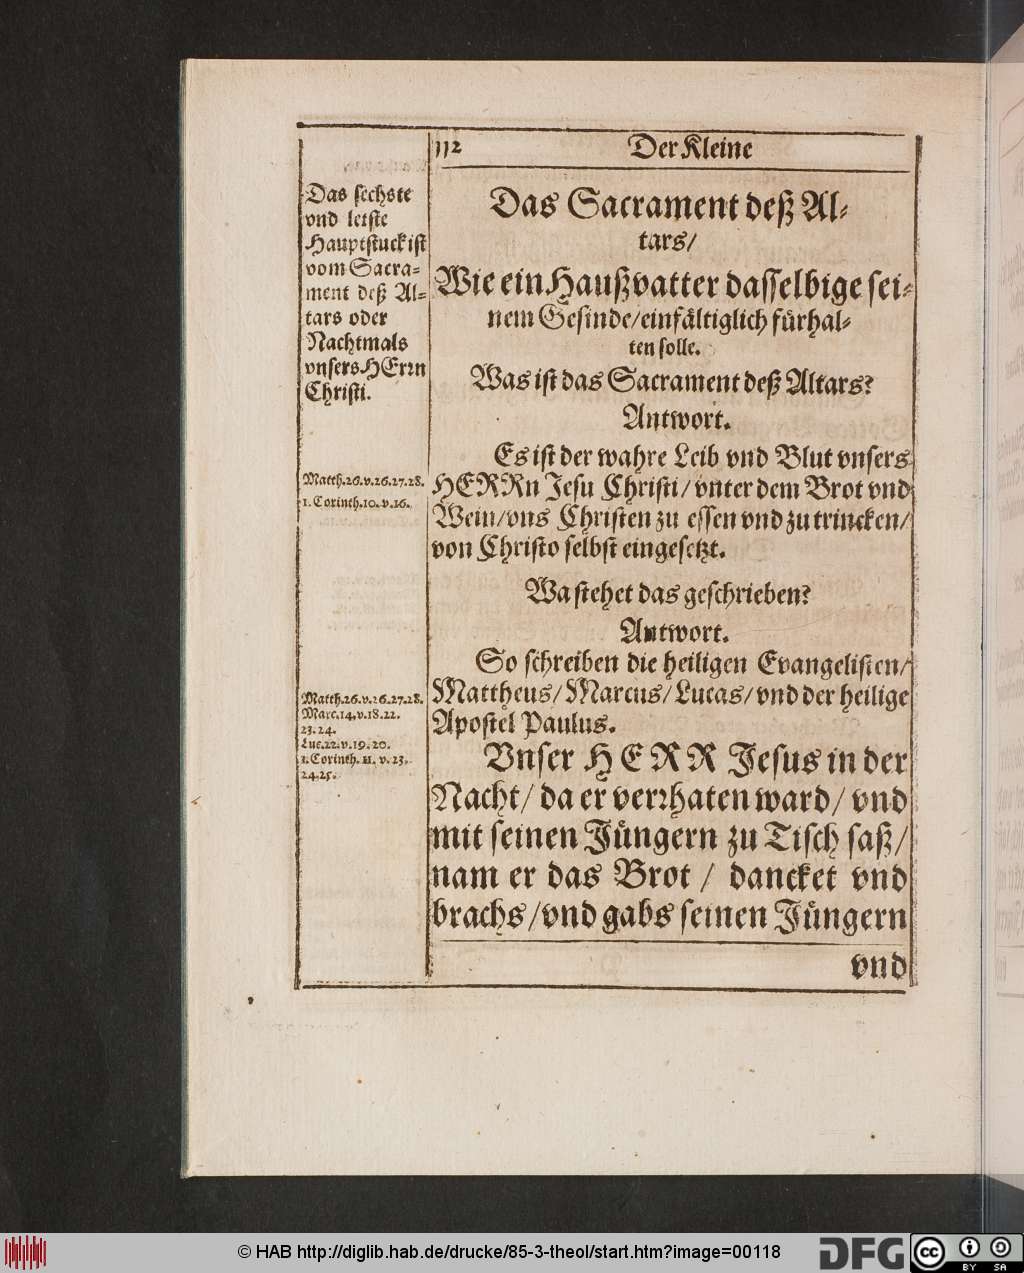 112
Der Kleine
Das sechste
vnd letste
Hauptstuck ist
vom Sacra-
ment deß Al-
tars oder
Nachtmals
vnsers HErrn
Christi.
Das Sacrament deß Al-
tars/
Wie ein Haußvatter dasselbige sei-
nem Gesinde/einfältiglich fürhal-
ten solle.
Was ist das Sacrament deß Altars?
Antwort.
Es ist der wahre Leib vnd Blut vnsers
HERRn Jesu Christi/ vnter dem Brot vnd
Wein/vns Christen zu essen vnd zu trincken/
von Christo selbst eingesetzt.
Matth.26.v.26.27.28.
1. Corinth.10.v.16.
Wa stehet das geschrieben?
Antwort.
So schreiben die heiligen Evangelisten/
Mattheus/ Marcus/ Lucas/ vnd der heilige
Apostel Paulus.
Matth.26.v.26.27.28.
Marc.14.v.18.22.
23.24.
Luc.22.v.19.20.
1.Corinth. 11. v. 23.
24.25.
Vnser HERR Jesus in der
Nacht/ da er verrhaten ward/ vnd
mit seinen Jüngern zu Tisch saß/
nam er das Brot / dancket vnd
brachs /vnd gabs seinen Jüngern
vnd
© HAB http://diglib.hab.de/drucke/85-3-theol/start.htm?image=00118
DFG
cc
BY SA